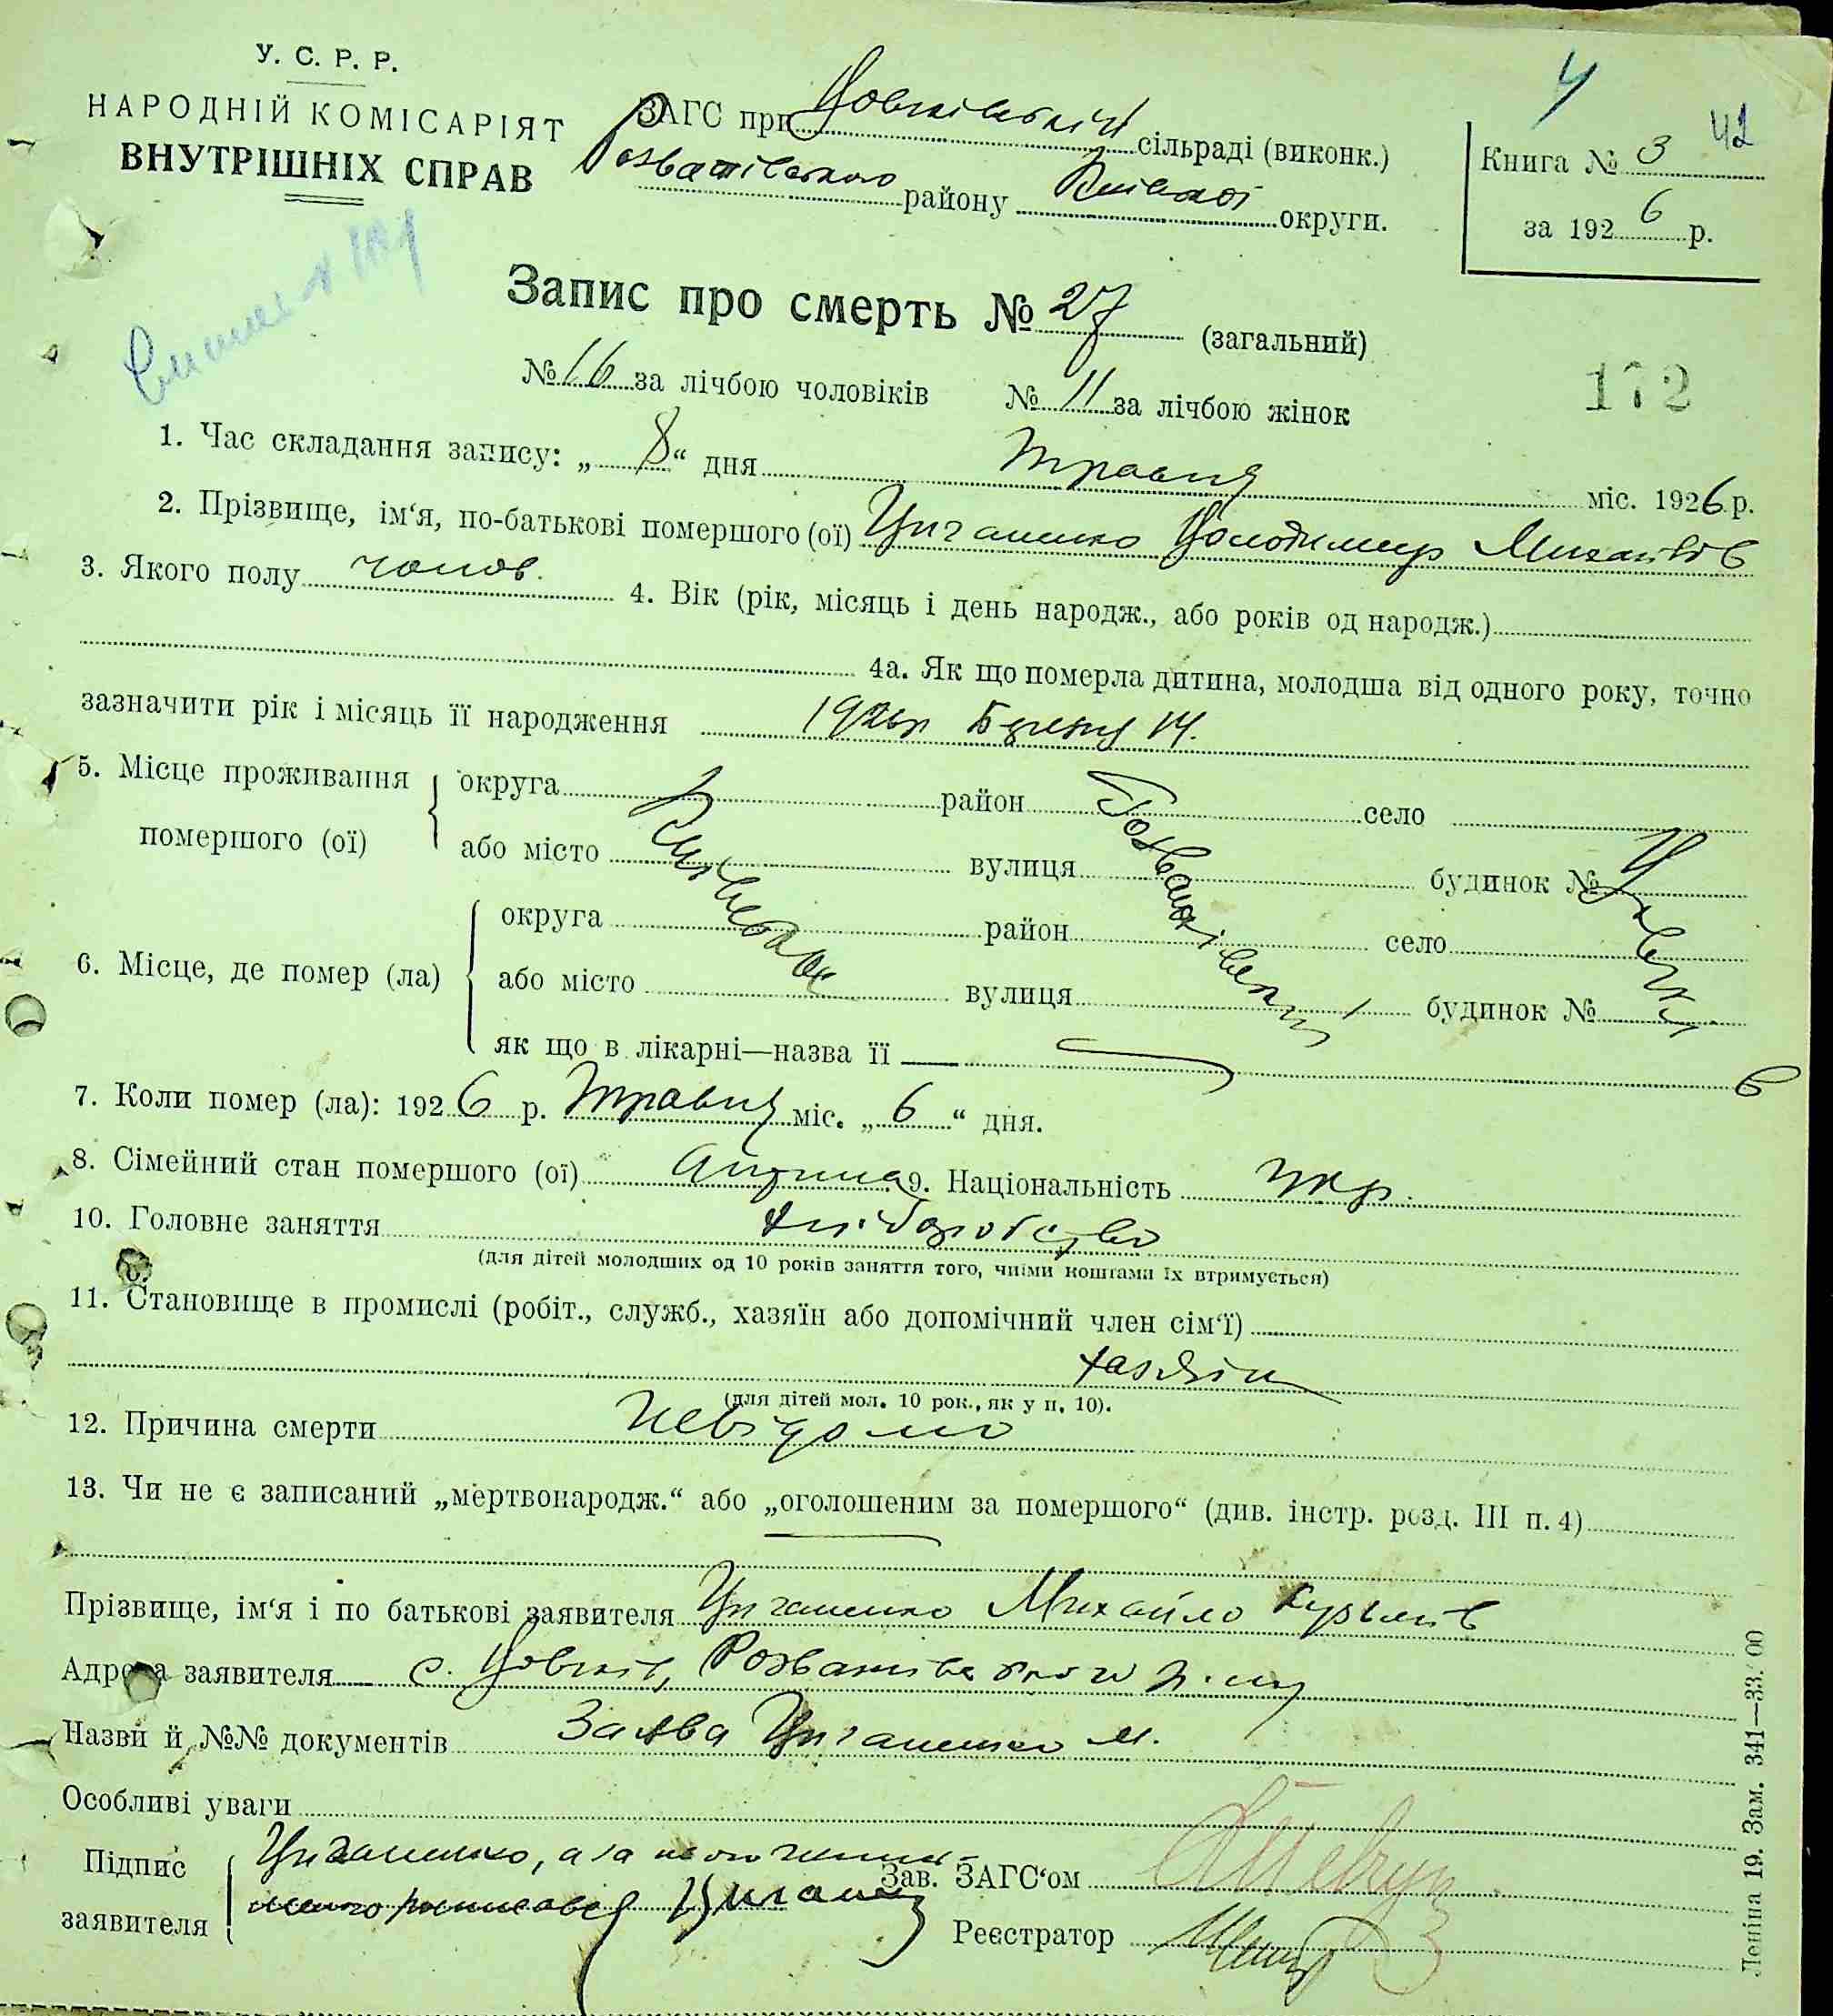 У. С. Р. Р.
НАРОДНІЙ КОМІСАРІЯТ
ВНУТРІШНІХ СПРАВ
ЗАГС при сільраді (виконк.)
району округи.
4 42
Книга № 3
за 1926 р.
Запис про смерть № 27 (загальний)
№ 16 за лічбою чоловіків № 11 за лічбою жінок
172
1. Час складання запису: „ 8 “ дня травня міс. 1926 р.
2. Прізвище, ім‘я, по-батькові помершого (ої) Циганенко Володимир Михайлів
3. Якого полу чолов. 4. Вік (рік, місяць і день народж., або років од народж.)
4а. Як що померла дитина, молодша від одного року, точно
зазначити рік і місяць її народження 1926р Березня 14.
5. Місце проживання помершого (ої) округа район село
або місто вулиця будинок №
6. Місце, де помер (ла) округа район село
або місто вулиця будинок №
як що в лікарні—назва її
7. Коли помер (ла): 1926 р. Травня міс. „ 6 “ дня.
8. Сімейний стан помершого (ої) дитина 9. Національність укр.
10. Головне заняття хліборобство
(для дітей молодших од 10 років заняття того, чиїми коштами їх втримується)
11. Становище в промислі (робіт., служб., хазяїн або допомічний член сім‘ї)
хазяїн
(для дітей мол. 10 рок., як у п. 10).
12. Причина смерти невідомо
13. Чи не є записаний „мертвонародж.“ або „оголошеним за помершого“ (див. інстр. розд. III п. 4)
Прізвище, ім‘я і по батькові заявителя Циганенко Михайло
Адреса заявителя с.
Назви й №№ документів Заява Циганенко М.
Особливі уваги
Підпис заявителя Циганенко, а за
Зав. ЗАГС‘ом
Реєстратор
Леніна 19. Зам. 341—33.'00